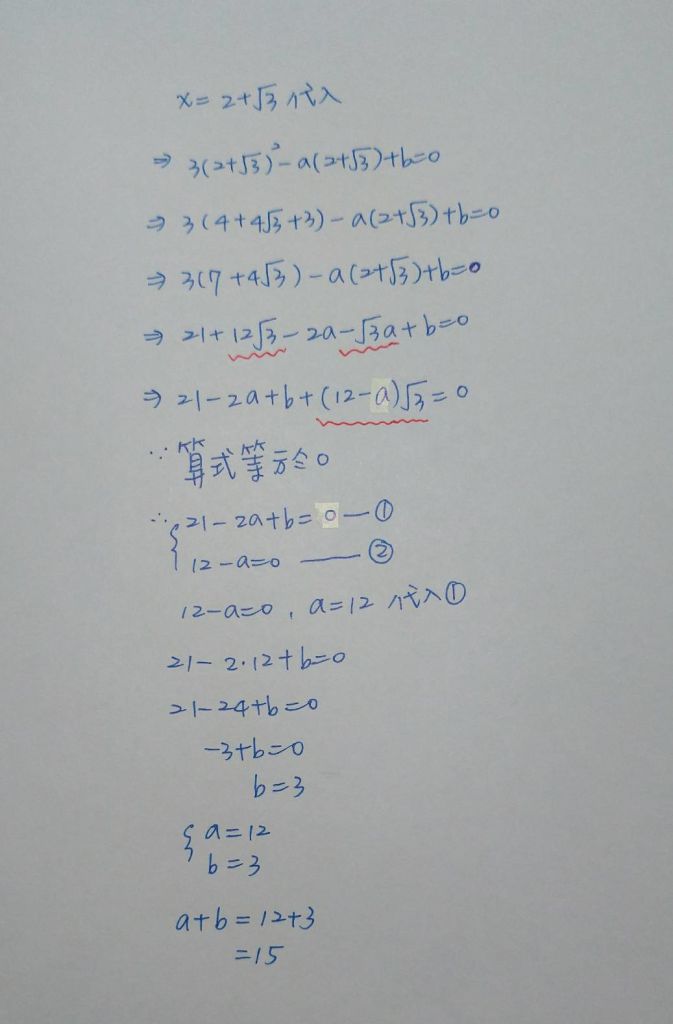 x = 2+√3 代入
⇒ 3(2+√3)² - a(2+√3)+b=0
⇒ 3(4+4√3+3) - a(2+√3)+b=0
⇒ 3(7+4√3) - a(2+√3)+b=0
⇒ 21+12√3-2a-√3a+b=0
⇒ 21-2a+b+(12-a)√3=0
∵ 算式等於0
∴ { 21-2a+b=0 — ①
12-a=0 —— ②
12-a=0 , a=12 代入①
21-2·12+b=0
21-24+b=0
-3+b=0
b=3
{ a=12
b=3
a+b=12+3
=15